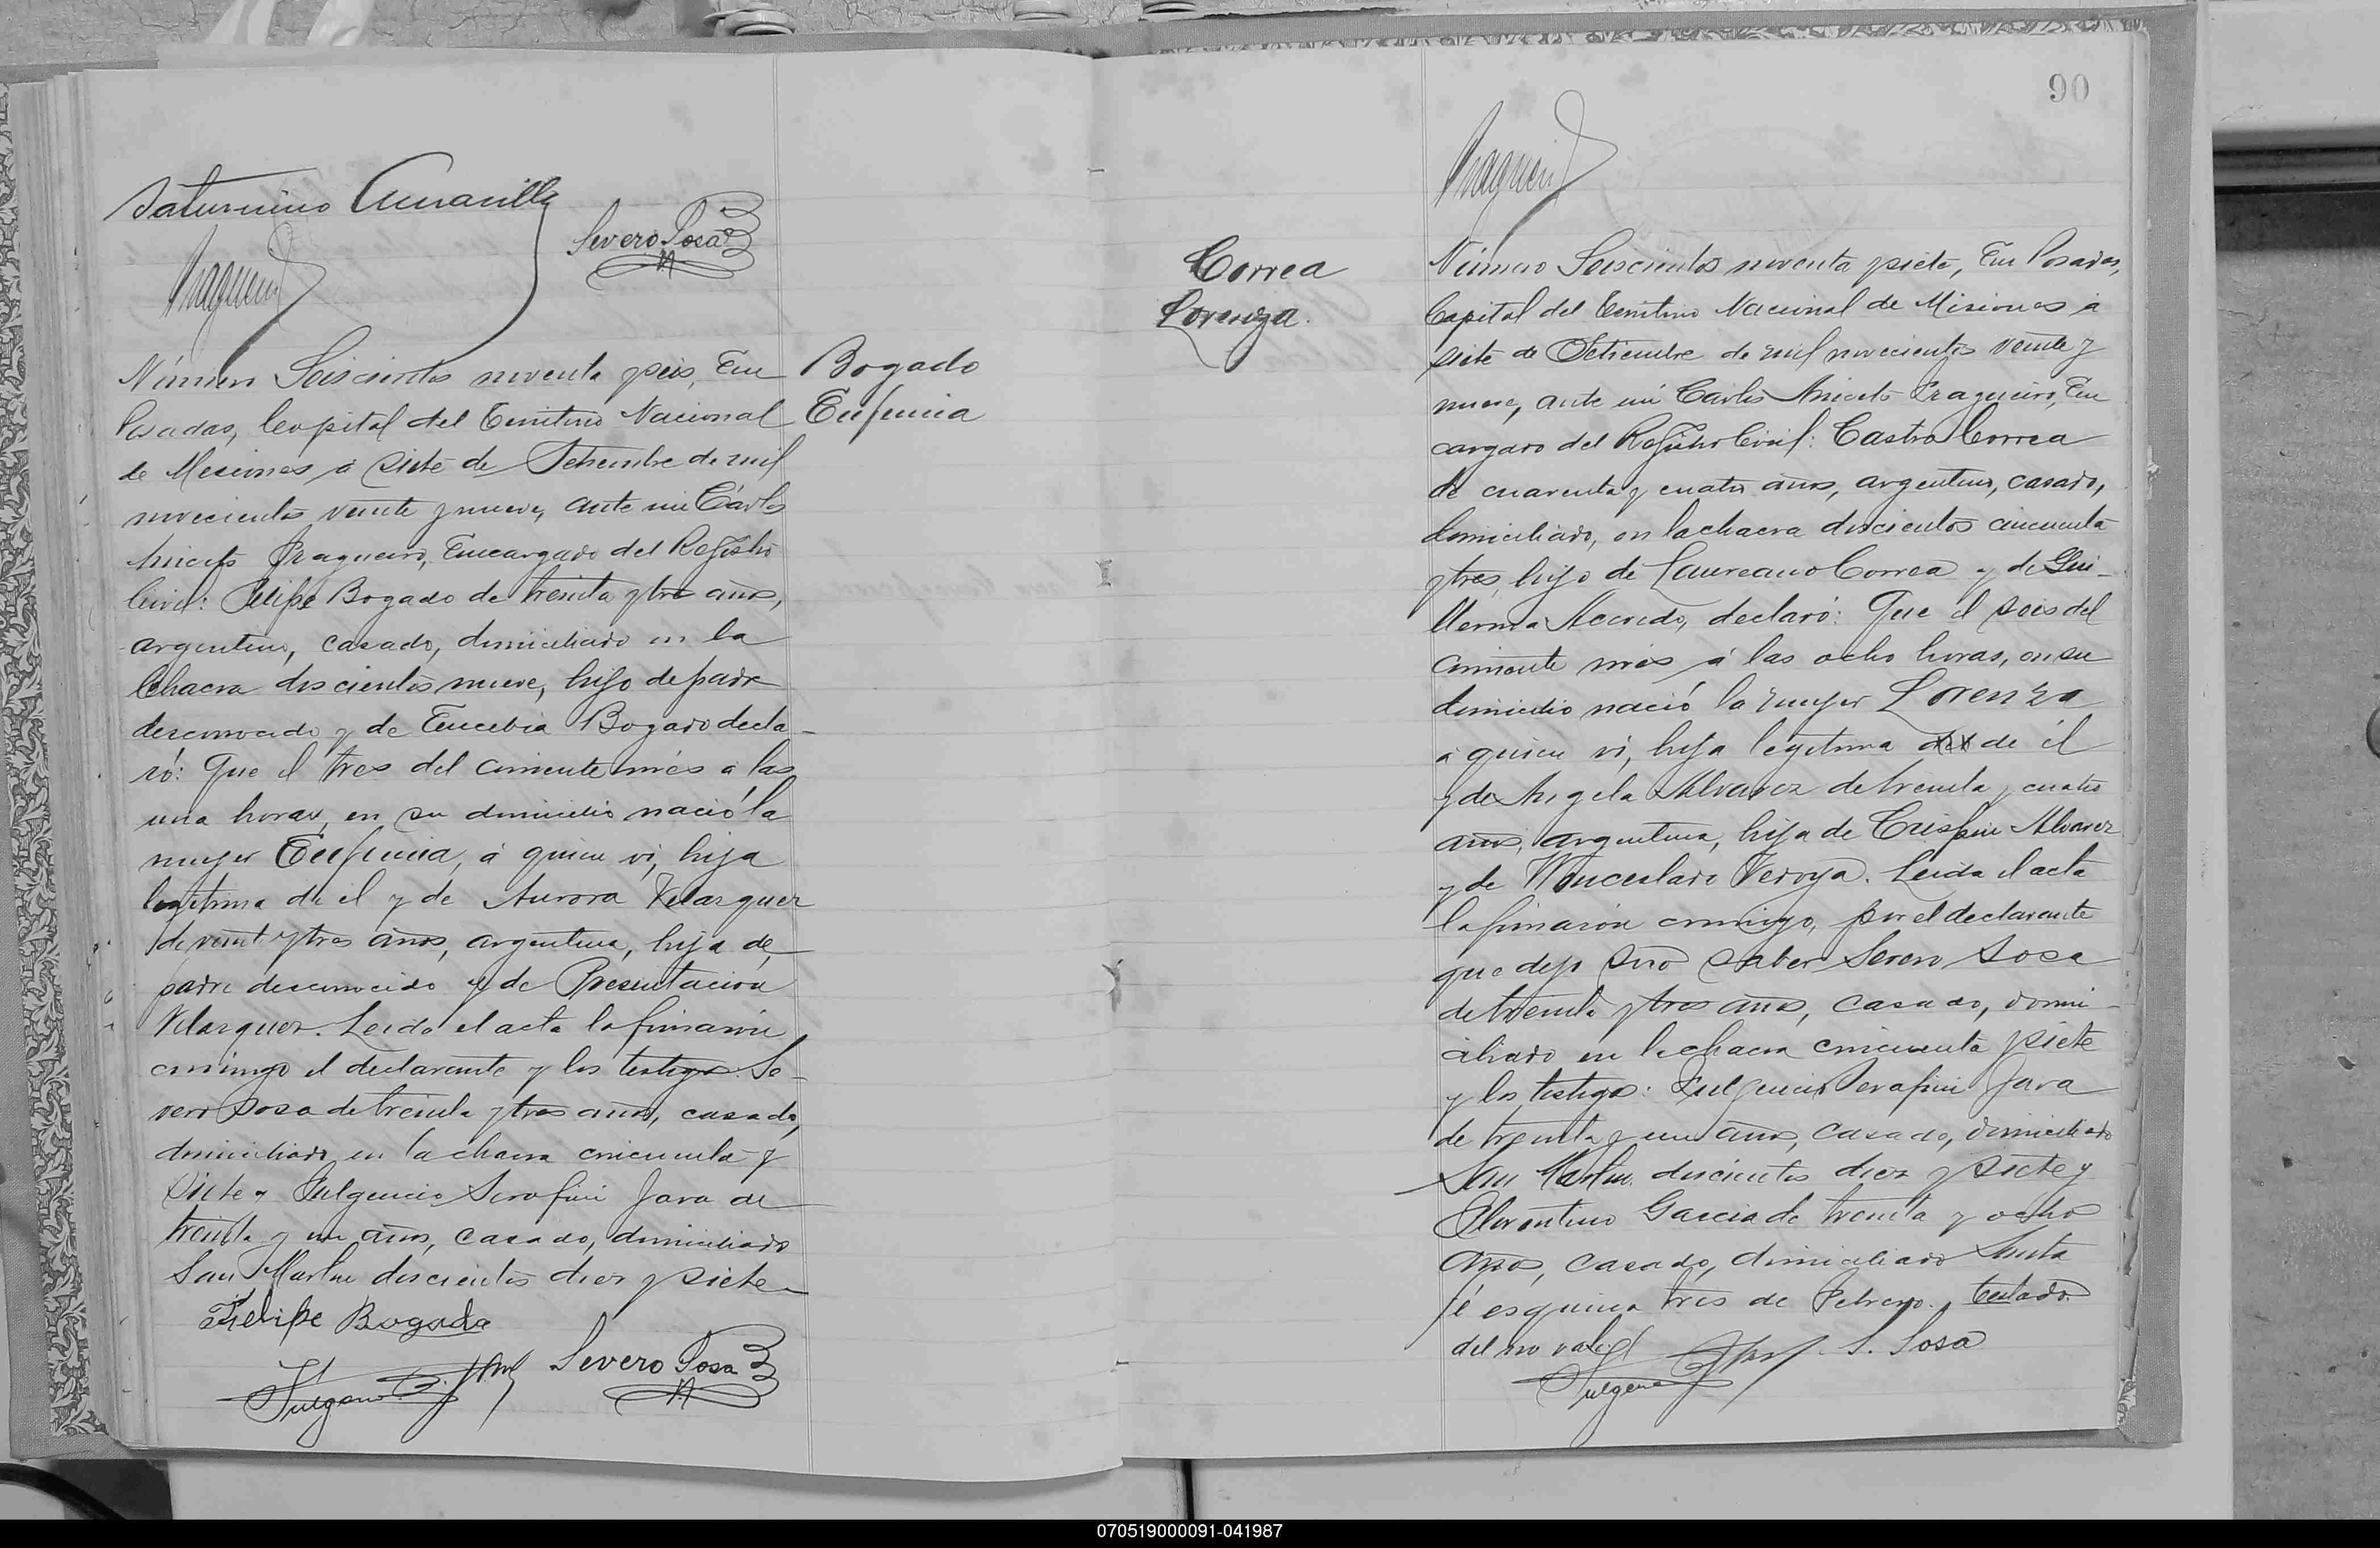 Saturnino Amarilla
Severo Sosa
Fragueiro
Número Seiscientos noventa y seis, En
Posadas, Capital del Territorio Nacional
de Misiones á siete de Setiembre de mil
novecientos veinte y nueve, ante mi Cárlos
Aniceto Fragueiro, Encargado del Registro
Civil: Felipe Bogado de treinta y tres años,
argentino, casado, domiciliado en la
Chacra doscientos nueve, hijo de padre
desconocido y de Eucebia Bogado decla-
ró: Que el tres del corriente més á las
una horas, en su domicilio nació la
mujer Eufemia, á quien ví, hija
legítima de el y de Aurora Velazquez
de veinte y tres años, argentina, hija de
padre desconocido y de Presentación
Velazquez. Leida el acta la firmaron
conmigo el declarante y los testigos: Se-
vero Sosa de treinta y tres años, casado,
domiciliado en la chacra cincuenta y
siete y Fulgencio Serafin Jara de
treinta y un años, casado, domiciliado
San Martin doscientos diez y siete
Felipe Bogado
Severo Sosa
Fulgencio
Bogado
Eufemia
90
Fragueiro
Correa
Lorenza.
Número Seiscientos noventa y siete, En Posadas,
Capital del Territorio Nacional de Misiones á
siete de Setiembre de mil novecientos veinte y
nueve, ante mi Carlos Aniceto Fragueiro, En
cargado del Registro Civil: Castro Correa
de cuarenta y cuatro años, argentino, casado,
domiciliado, en la chacra doscientos cincuenta
y tres, hijo de Laureano Correa y de Gui-
llerma Acevedo, declaró: Que el seis del
corriente més á las ocho horas, en su
domicilio nació la mujer Lorenza
á quien ví, hija legítima del de él
y de Angela Alvarez de treinta y cuatro
años, argentina, hija de Crispin Alvarez
y de Wenceslada Veroya. Leida el acta
la firmaron conmigo, por el declarante
que dijo no saber Severo Sosa
de treinta y tres años, casado, domi-
ciliado en la chacra cincuenta y siete
y los testigos: Fulgencio Serafin Jara
de treinta y un años, casado, domiciliado
San Martin doscientos diez y siete y
Florentino Garcia de treinta y ocho
años, casado, domiciliado Santa
fé esquina tres de Febrero. testado
del no vale
S. Sosa
Fulgencio
070519000091-041987